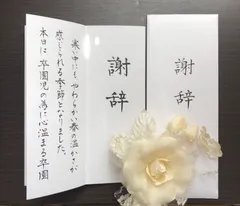 謝辞
謝辞
寒い中にも やわらかい春の温かさが
感じられる季節となりました。
本日は 卒園児の為に心温まる卒園